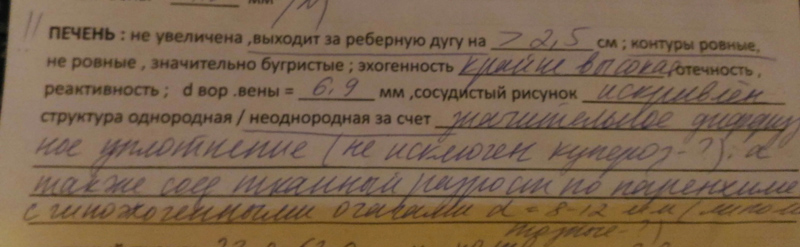 мм
ПЕЧЕНЬ : не увеличена ,выходит за реберную дугу на > 2,5 см ; контуры ровные,
не ровные , значительно бугристые ; эхогенность крайне высокая отечность ,
реактивность ; d вор .вены = 6.9 мм ,сосудистый рисунок искривлен
структура однородная / неоднородная за счет значительное диффуз
ное уплотнение (не исключен купероз - ?). а
также соед тканный разрост по паренхиме
с гипоэхогенными очагами d = 8-12 мм (липом
тозные - ?)